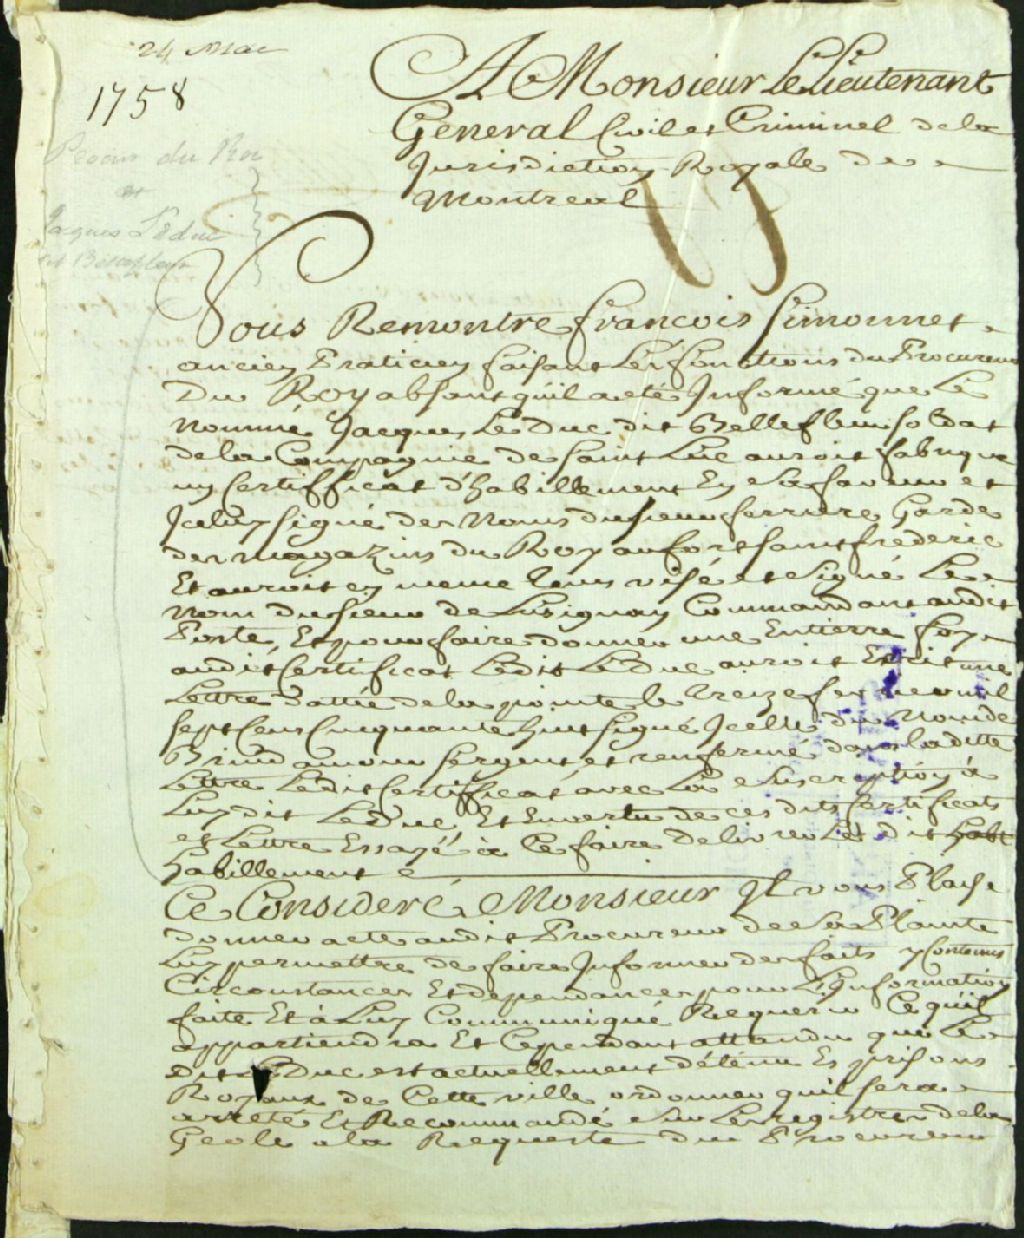 24 Mai
1758
Procur du Roi
et
Jacques Leduc
dit Bellefleur
A Monsieur Le Lieutenant
General Civil et Criminel de la
Jurisdiction Royale de
Montreal
Vous Remontre francois Simonnet
ancien Praticien faisant Les fonctions du Procureur
Du Roy absent quil a eté Informé que Le
nommé Jacques Le Duc dit Bellefleur soldat
de la Compagnie de Saint Luc auroit fabriqué
un Certifficat d'habillement En sa faveur et
Iceluy signé des Noms du sieur ferriere Garde
des magazins du Roy au fort saint frederic
Et auroit en meme tems visé et signé Le
Nom du sieur de Lusignan Commandant audit
Poste, Et pour faire donner une Entierre foy
audit Certifficat Ledit Le Duc auroit Ecrit une
Lettre dattée de la pointe le treize fevrier mil
sept Cens Cinquante huit signé Icelle du Nom de
Brindamour sergent et renfermé dans la ditte
Lettre Ledit Certifficat avec La Suscription à
Luy dit Le Duc, Et En vertu de ces dits Certificats
et Lettre Essayé à Ce faire delivrer Le dit habt
habillement
Ce Consideré Monsieur Il vous Plaise
donner acte audit Procureur de Sa Plainte
Luy permettre de faire Informer des faits y Contenus
Circonstances Et dependances pour L'Information
faite Et à Luy Communiqué Requerir Ce quil
appartiendra Et Cependant attendu que Le
dit Le Duc est actuellement détenu Es prisons
Royaux de Cette ville ordonner quil sera
arreté Et Recommandé sur Les registres de la
Geole a la Requeste du Procureur